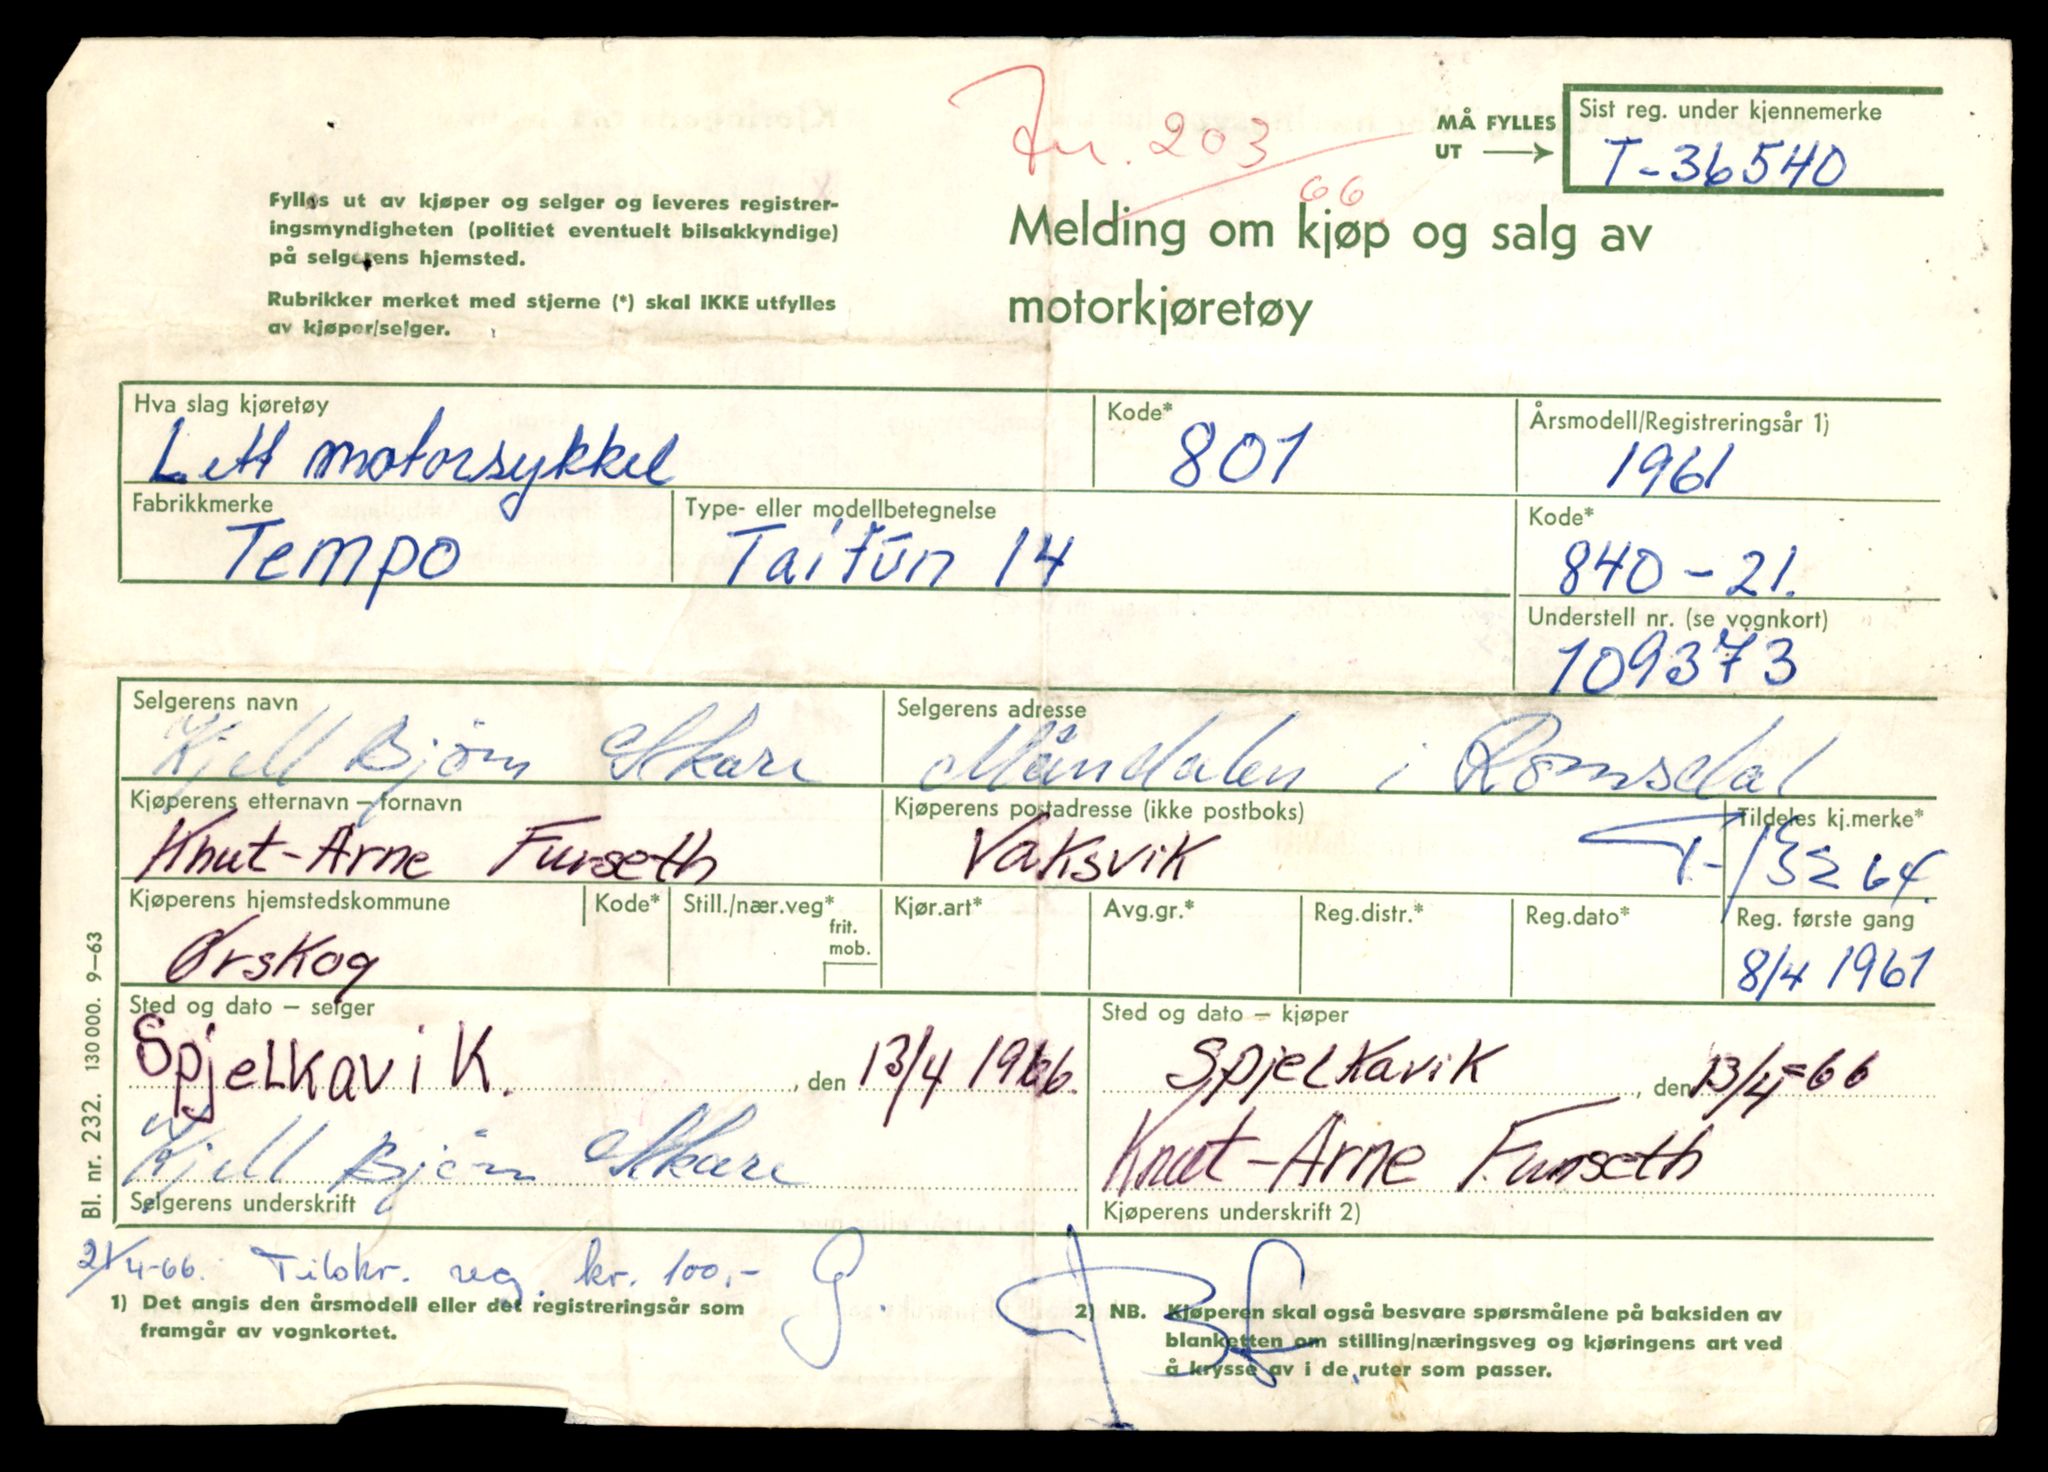 Jnr. 203
66.
MÅ FYLLES
UT
Sist reg. under kjennemerke
T-36540
Fylles ut av kjøper og selger og leveres registrer-
ingsmyndigheten (politiet eventuelt bilsakkyndige)
på selgerens hjemsted.
Rubrikker merket med stjerne (*) skal IKKE utfylles
av kjøper/selger.
Melding om kjøp og salg av
motorkjøretøy
Hva slag kjøretøy
Lett motorsykkel
Kode*
801
Årsmodell/Registreringsår 1)
1961
Fabrikkmerke
Tempo
Type- eller modellbetegnelse
Taifun 14
Kode*
840-21.
Understell nr. (se vognkort)
109373
Selgerens navn
Kjell Bjørn Skare
Selgerens adresse
Måndalen i Romsdal
Kjøperens etternavn – fornavn
Knut-Arne Furseth
Kjøperens postadresse (ikke postboks)
Vaksvik
Tildeles kj.merke*
T-13264.
Kjøperens hjemstedskommune
Ørskog
Kode*
Still./nær.veg*
frit.
mob.
Kjør.art*
Avg.gr.*
Reg.distr.*
Reg.dato*
Reg. første gang
8/4 1961
Sted og dato – selger
Spjelkavik. , den 13/4 1966
Sted og dato – kjøper
Spjelkavik , den 13/4-66
Kjell Bjørn Skare
Selgerens underskrift
Knut-Arne Furseth
Kjøperens underskrift 2)
Bl. nr. 232. 130 000. 9–63
21/4-66. Tilskr. reg. kr. 100,-
1) Det angis den årsmodell eller det registreringsår som
framgår av vognkortet.
2) NB. Kjøperen skal også besvare spørsmålene på baksiden av
blanketten om stilling/næringsveg og kjøringens art ved
å krysse av i de ruter som passer.